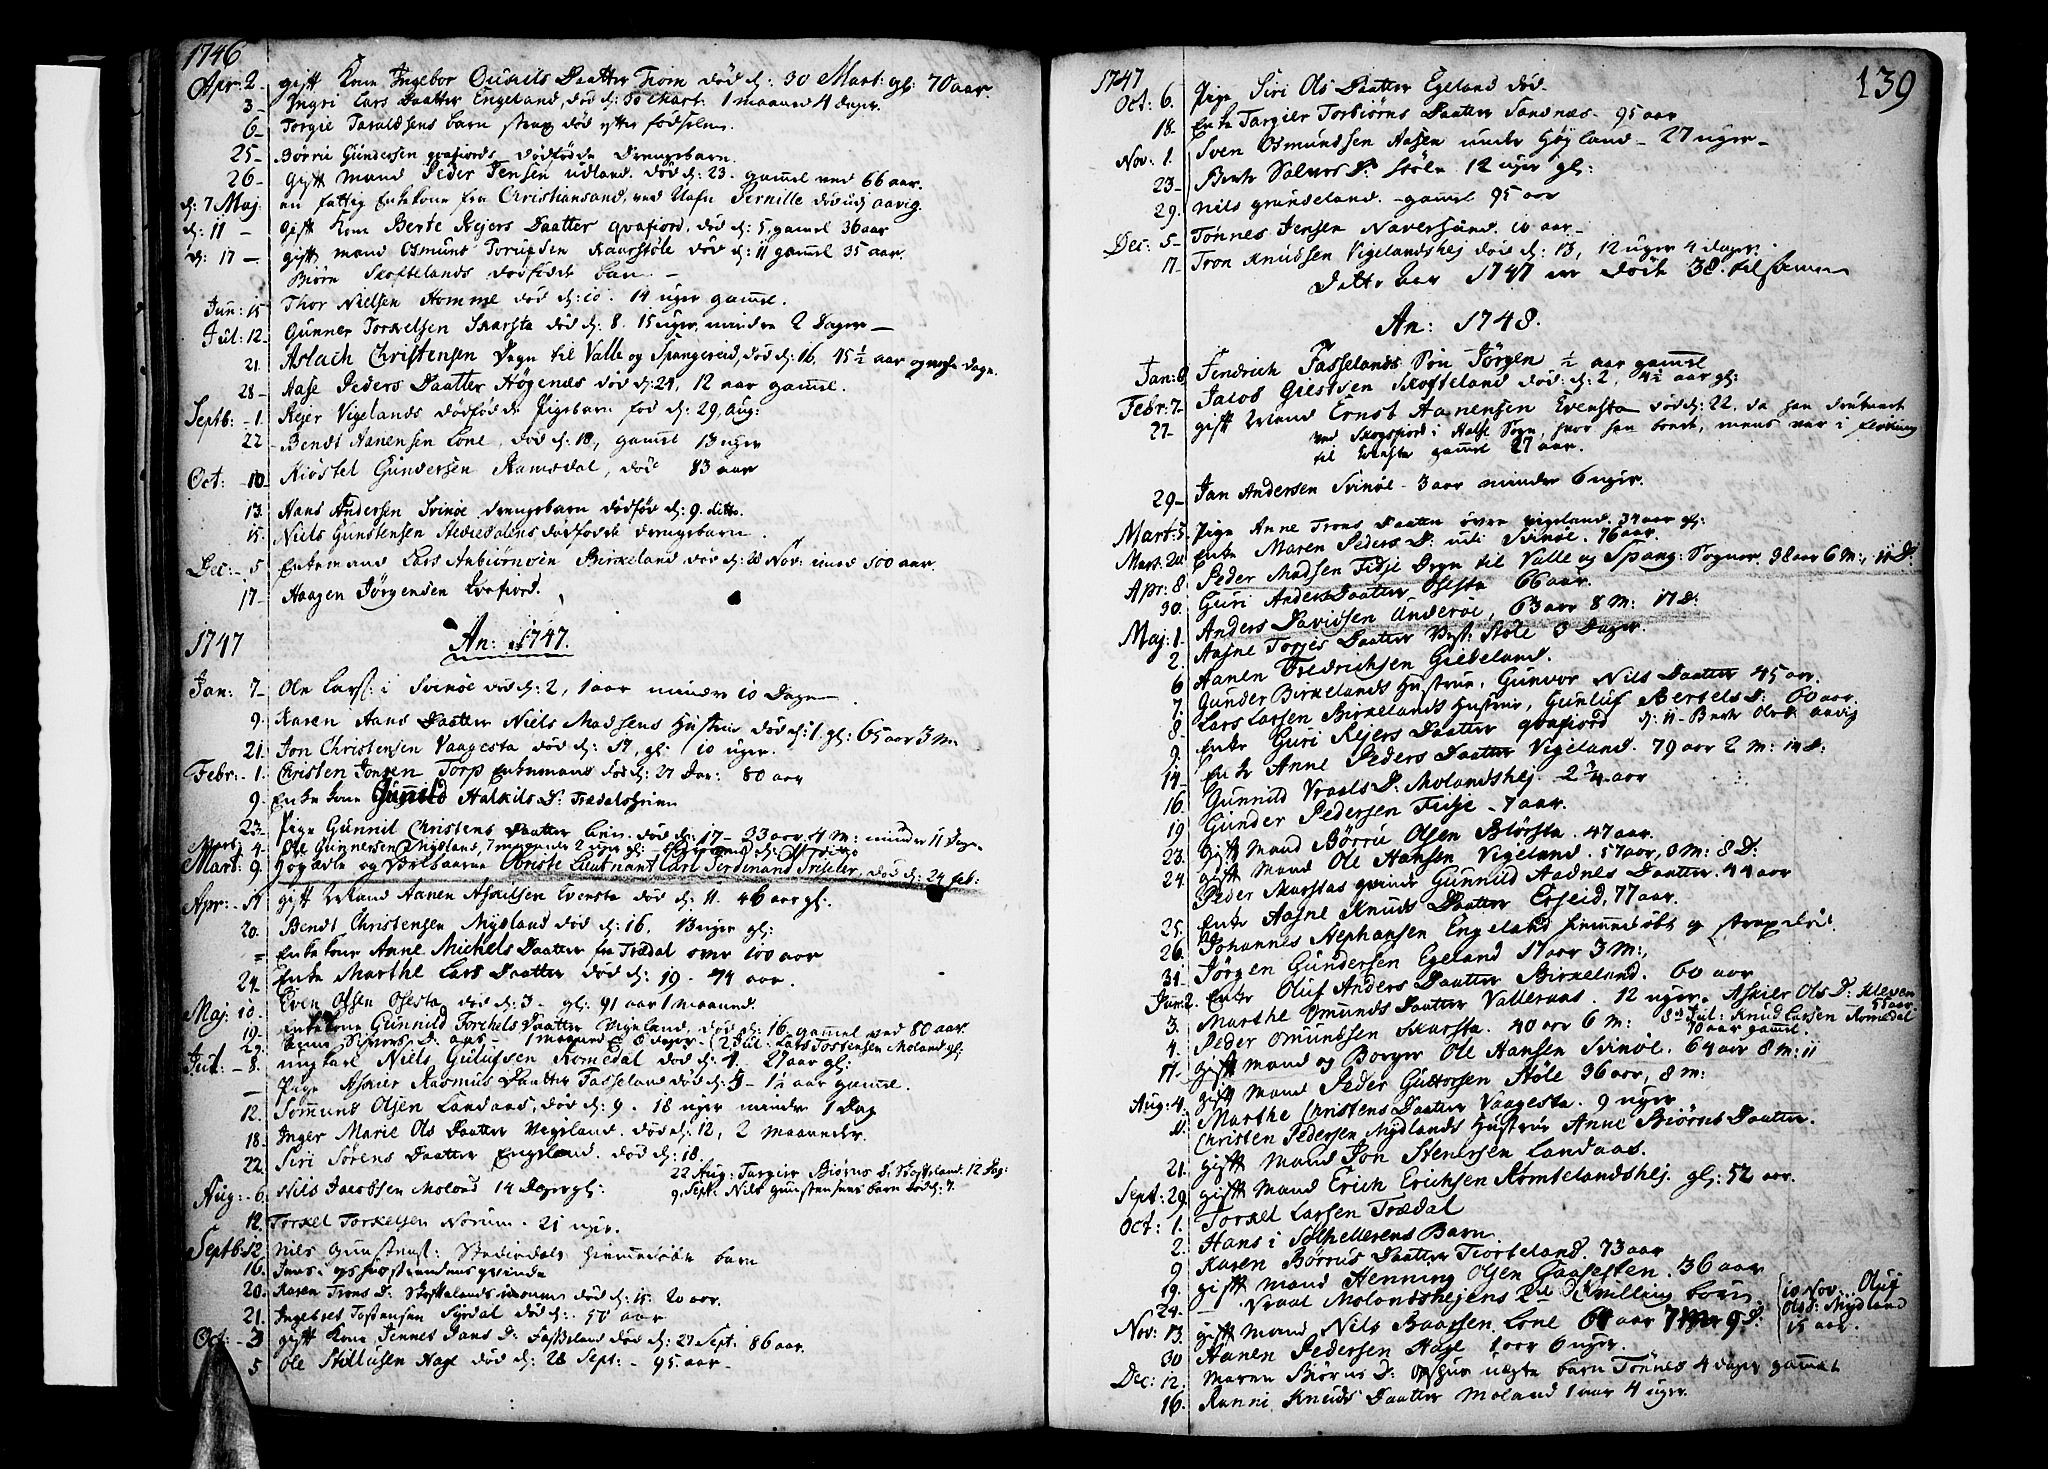 1746
Apr: 2 - gift Kone Ingebor Daatter Trom død d: 30 Mart: gl: 70 aar.
3 - Ingri Lars Daatter Engeland, død d: Mart: 1 maaned 4 dager.
6 - Torgie Taraldsens barn strax død efter fødselen.
25 - Børre Gundersen qvafiords dødfødde Drengebarn.
26 - gift Mand Peder Jensen udland. død d: 23. gammel ved 66 aar.
d: 7 Maj. en fattig Enkekone fra Christiansand, ved Nafn Pernille død aavig.
d: 11 - gift Kone Berte Rejers Daatter qvafiord, død d: 5, gamel 36 aar
d: 17 - gift mand Osmund Torufsen død d: 11 gammel 35 aar.
Biørn Skoftelands dødfødde barn. -
Jun: 15 Thor Nielsen Homme død d: 10. 14 uger gammel.
Jul: 12. Gunner Torkelsen Skarsta død d: 8. 15 uger, mindre 2 Dager -
21. Aslach Christensen Degn til Valle og Spangereid, død d: 16. 45 1/2 aar og Dage.
28 - Aase Peders Daatter Høgenæs død d: 24, 12 aar gammel.
Septb: - 1. Rejer Vigelands dødfødde Pigebarn fød d: 29, Aug:
22 - Bendt Aanensen Lone, død d: 18, gammel 13 uger
Oct: - 10. Kiøstel Gundersen Ramsdal, død 83 aar
13. Hans Andersen Svinøe drengebarn dødfød d: 9. ditto.
15. Niels Gunstensen dødfødde drengebarn.
Dec: - 5 Enkemand Lars Anbiørnsen Birkeland død d: 28 Nov: 100 aar.
17 - Haagen Jørgensen Qvafiord.
1747 An: 1747.
Jan: 7 - Ole Lars: i Svinøe død d: 2, 1 aar mindre 10 Dage
9. Karen Hans Daatter Niels Madsens Hustrue død d: 1. gl: 65 aar 3 m:
21. Jon Christensen Vaagesta død d: 17, gl: 10 uger.
Febr: - 1. Christen Jonsen Torp Enkemand død d: 27 Jan: 80 aar
9. Enke Kone Gunnild Halkils D: Trædal
23 - Pige Gunnil Christens Daatter død d: 17 - 23 aar 4 M: mindre 11 Dage
Mart: 4 - Ole Gunnersen Mydland, 7 maaneder 2 uger gl:
Mart: 9. Høyædle og Velbaarne Obriste Lieutenant Carl Ferdinand død d: 24 feb:
Apr: - gift Mand Aanen Askilsen Evensta død d: 11. 46 aar gl:
20. Bendt Christensen Mydland død d: 16, 13 uger gl:
= Enke kone Anne Michels Daatter fra Trædal over 100 aar
24. Enke Marthe Lars Daatter død d: 19 - 74 aar.
Maj: 10. Even Olsen Osesta død d: 3 - gl: 91 aar 1 maaned.
19. Enkekone Gunnild Torchels Daatter Vigeland, død d: 16 gammel ved 80 aar.
29. 1 maaned 8 dager. 2 Jul: Lars Tostensen Moland gl:
Jul: - 8. ungkarl Niels Gulufsen Romedal død d: 4. 27 aar gl:
- Pige Askier Rasmus Daatter Fasseland død d: 9 - 1 1/2 aar gammel.
12. Sommund Olsen Landaas, død d: 9. 18 uger mindre 1 Dag
18. Inger Marie Ols Daatter Vegeland. død d: 12, 2 maaneder.
22. Siri Sørens Daatter Engeland. død d: 18.
22 Aug: Targier Biørns D. Skofteland. 12 Dag:
Aug: - 6. Nils Jacobsen Moland 14 Dager gl: 9. Sept: Nils Gunstensens barn død d: 7.
12. Torkel Torkelsen Norum. 21 uger.
Septb: 12. Nils Gunstens: hiemmedøbte barn
16.
20. Karen Trons D. Skoftelands død d: 15. 20 aar.
21. Ingebret Tostensen Syrdal død d: 50 aar
Oct: - 3 gift Kone Jennes Jans D: Fasseland død d: 27 Sept: 86 aar.
5 Ole Stillufsen Hage død d: 28 Sept: - 95. aar -
139
1747
Oct: 6. Pige Siri Ols Daatter Egeland død -
18. Enke Targier Torbiørns Daatter Sandnæs - 95 aar
Nov: 1. Sven Osmundsen Aasen under Høyland - 27 uger -
23 - Berte Salves D. Støle 12 uger gl:
29. Nils grundeland. - gamel 95 aar
Dec: 5 - Tønnes Jensen Naversund. 10 aar -
17 - Tron Knudsen Vigelandshej døde d: 13, 12 uger 4 dager.
Dette Aar 1747 er døde 38. tilsamen
An: 1748.
Jan: 6 Fendrich Fasselands Søn Jörgen 1/2 aar gamel
Febr: 7 - Jacob Giertsen Skofteland død: d: 2, 4 1/2 aar gl:
27. gift Mand Ernst Aanensen Evensta død d: 22. da han druknet
ved Skogsfiord i Halse Sogn, hvor han boede, mens var i
til Evensta gammel 27 aar.
29 - Jan Andersen Svinøe - 3 aar mindre 6 uger.
Mart: 3. Pige Anne Trons Daatter øvre Vigeland. 34 aar gl:
Mart: 20. Enke Maren Peders D: udi Svinøe. 76 aar.
Apr: 8. Peder Madsen Fidje Degn til Valle og Spang: Sogner. 38 aar 6 M:, 11 D:
30. Guri Anders Daatter Osesta 66 aar.
Maj: 1. Anders Davidsen Underøe, 63 aar 8 M: 17 D:
2. Aasne Torjes Daatter Vest. Støle 3 Dager.
6 Aanen Fredrichsen Giedeland.
7. Gunder Birkelands Hustrue, Gunvor Nils Daatter 45 aar.
8. Lars Larsen Birkelands Hustrue, Gunluf Bertels D: 60 aar
9. Enke Guri Rejers Daatter qvafiord d: 11 - Berte Ols D aavig
14. Enke Anne Peders Daatter Vigeland. 79 aar 2 M: 14 D:
16. Gunnild Vraals D: Molandshej. 2 3/4 aar
19 Gunder Pedersen Fidje - 7 aar.
23. gift Mand Børre Olsen Blørsta. 47 aar.
24. gift Mand Ole Hansen Vigeland. 57 aar, 8 M: 8 D:
Peder Marstas qvinde Gunnild Aadnes Daatter. 44 aar
25. Enke Aasne Knuds Daatter Erseid, 77 aar.
26. Johannes Stephansen Engeland hiemmedøbt og strax død.
31. Jörgen Gundersen Egeland 17 aar 3 M:,
Jun: 2. Enke Oluf Anders Daatter Birkeland. 60 aar
3. Marthe Omunds Daatter Valleraas. 12 uger. Askier Ols D: Kleven 55 aar
4. Peder Omundsen Skarsta. 40 aar 6 M: 8d Jul: Knud Larsen Romedal 70 aar gammel.
17. gift mand og Borger Ole Hansen Svinøe. 64 aar 8 M: 11
gift Mand Peder Guttorsen Støle 36 aar, 8 M:
Aug: 4. Marthe Christens Daatter Vaagesta. 9 uger
11. Christen Pedersen Mydlands Hustrue Anne Biørns Daatter.
21. gift Mand Jon Stenersen Landaas.
Sept: 29. gift Mand Erich Erichsen Romtelandshej. gl: 52 aar.
Oct: 1. Torkel Larsen Trædal
2. Hans i Solhellerens Barn.
9 Karen Børres Daatter Tiorteland. 73 aar
19. gift Mand Henning Olsen Gaaseften. 36 aar
24 - Vraal Molandshejens 2de Tvilling børn.
10 Nov: Oluf Olsd: Mydland 15 aar.
Nov: 13. gift Mand Nils Baarsen Lone 64 aar 7 M 9 D:
30 Aanen Pedersen Hage 1 aar 6 uger.
Dec: 12. Maren Biørns D: uægte barn Tönnes 4 dager gammel
16. Ranni Knuds Daatter Moland 1 aar 4 uger.